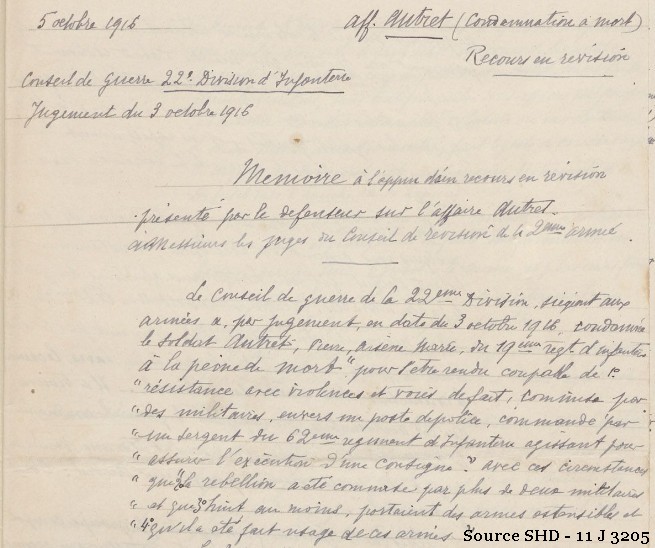 5 octobre 1916
aff. Autret (Condamnation à mort)
Recours en révision
Conseil de guerre 22e Division d'Infanterie
Jugement du 3 octobre 1916
Memoire à l'appui d'un recours en révision
présenté par le defenseur sur l'affaire Autret.
à Messieurs les juges du Conseil de revision de la 2eme armée
Le Conseil de guerre de la 22eme Division, siégeant aux
armées a, par jugement, en date du 3 octobre 1916, condamné
le soldat Autret, Pierre, arsène Marie, du 19eme regt d'infanterie
à la peine de mort "pour s'être rendu coupable de 1°
"résistance avec violences et voies de fait, commise par
"des militaires, envers un poste de police, commandé par
"un sergent du 62eme regiment d'Infanterie agissant pour
"assurer l'exécution d'une consigne. avec ces circonstances
"que 2° la rebellion a été commise par plus de deux militaires
"et que 3° huit au moins, portaient des armes ostensibles et
"4° qu'il a été fait usage de ces armes"
Source SHD - 11 J 3205